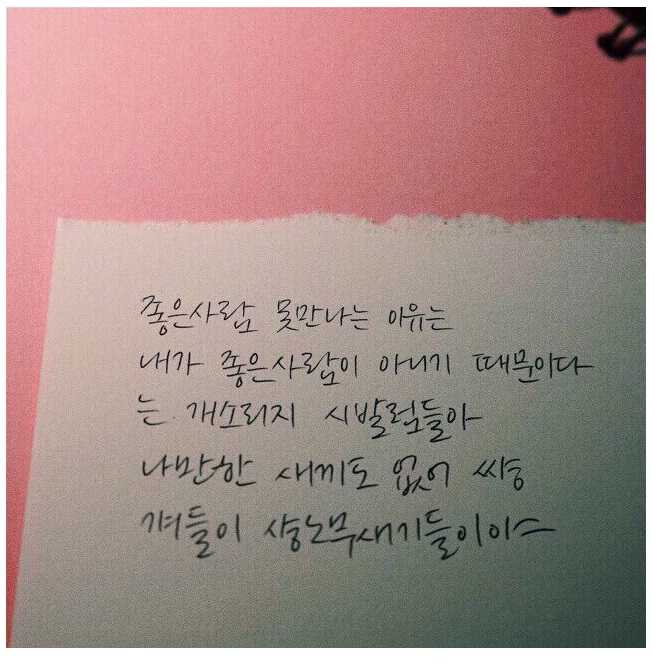 좋은사람 못만나는 이유는
내가 좋은사람이 아니기 때문이다
는 개소리지 시발럼들아
나만한 새끼도 없어 쌰숑
갸들이 상노무새기들이이스